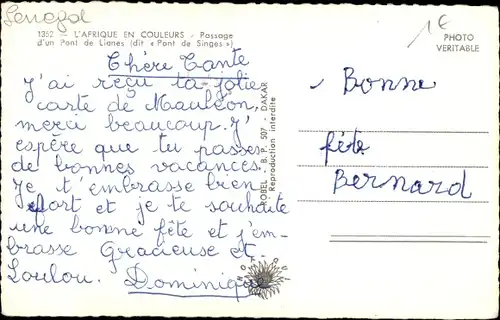 Senegal
1352 - L'AFRIQUE EN COULEURS - Passage
d'un Pont de Lianes (dit « Pont de Singes »)
1€
PHOTO
VERITABLE
Chère Tante
J'ai reçu ta jolie
carte de Mauléon,
merci beaucoup. J'
espère que tu passes
de bonnes vacances.
Je t'embrasse bien
fort et je te souhaite
une bonne fête et j'em-
brasse Gracieuse et
Loulou. Dominique
HOBEL - B. P. 507 - DAKAR
Reproduction interdite
Bonne
fête
Bernard